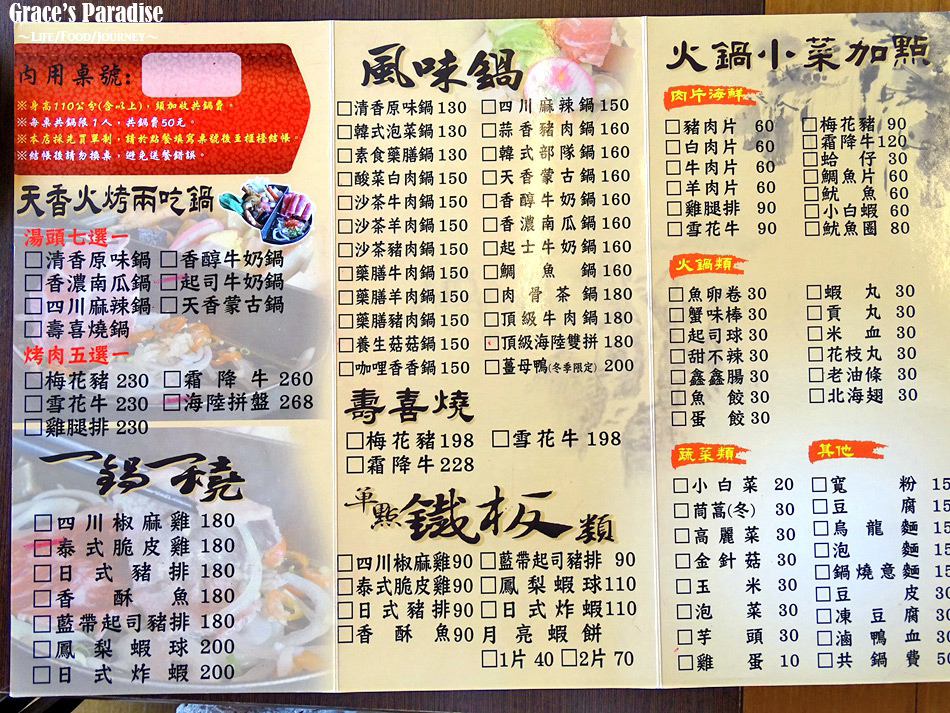 Grace's Paradise
~LIFE/FOOD/JOURNEY~
內用桌號:
※身高110公分(含以上),須加收共鍋費。
※每桌共鍋限1人,共鍋費50元。
※本店採先買單制,請於點餐填寫桌號後至櫃檯結帳。
※結帳後請勿換桌,避免送餐錯誤。
天香火烤兩吃鍋
湯頭七選一
□清香原味鍋 □香醇牛奶鍋
□香濃南瓜鍋 □起司牛奶鍋
□四川麻辣鍋 □天香蒙古鍋
□壽喜燒鍋
烤肉五選一
□梅花豬 230 □霜降牛 260
□雪花牛 230 □海陸拼盤 268
□雞腿排 230
一鍋一燒
□四川椒麻雞 180
□泰式脆皮雞 180
□日式豬排 180
□香酥魚 180
□藍帶起司豬排 180
□鳳梨蝦球 200
□日式炸蝦 200
風味鍋
□清香原味鍋 130 □四川麻辣鍋 150
□韓式泡菜鍋 130 □蒜香豬肉鍋 160
□素食藥膳鍋 130 □韓式部隊鍋 160
□酸菜白肉鍋 150 □天香蒙古鍋 160
□沙茶牛肉鍋 150 □香醇牛奶鍋 160
□沙茶羊肉鍋 150 □香濃南瓜鍋 160
□沙茶豬肉鍋 150 □起士牛奶鍋 160
□藥膳牛肉鍋 150 □鯛魚鍋 160
□藥膳羊肉鍋 150 □肉骨茶鍋 180
□藥膳豬肉鍋 150 □頂級牛肉鍋 180
□養生菇菇鍋 150 □頂級海陸雙拼 180
□咖哩香香鍋 150 □薑母鴨(冬季限定) 200
壽喜燒
□梅花豬 198 □雪花牛 198
□霜降牛 228
單點鐵板類
□四川椒麻雞 90 □藍帶起司豬排 90
□泰式脆皮雞 90 □鳳梨蝦球 110
□日式豬排 90 □日式炸蝦 110
□香酥魚 90 月亮蝦餅
□1片 40 □2片 70
火鍋小菜加點
肉片海鮮
□豬肉片 60 □梅花豬 90
□白肉片 60 □霜降牛 120
□牛肉片 60 □蛤仔 30
□羊肉片 60 □鯛魚片 60
□雞腿排 90 □魷魚 60
□雪花牛 90 □小白蝦 60
□魷魚圈 80
火鍋類
□魚卵卷 30 □蝦丸 30
□蟹味棒 30 □貢丸 30
□起司球 30 □米血 30
□甜不辣 30 □花枝丸 30
□鑫鑫腸 30 □老油條 30
□魚餃 30 □北海翅 30
□蛋餃 30
蔬菜類 其他
□小白菜 20 □寬粉 15
□茼蒿(冬) 30 □豆腐 15
□高麗菜 30 □烏龍麵 15
□金針菇 30 □泡麵 15
□玉米 30 □鍋燒意麵 15
□泡菜 30 □豆皮 30
□芋頭 30 □凍豆腐 30
□雞蛋 10 □滷鴨血 30
□共鍋費 50